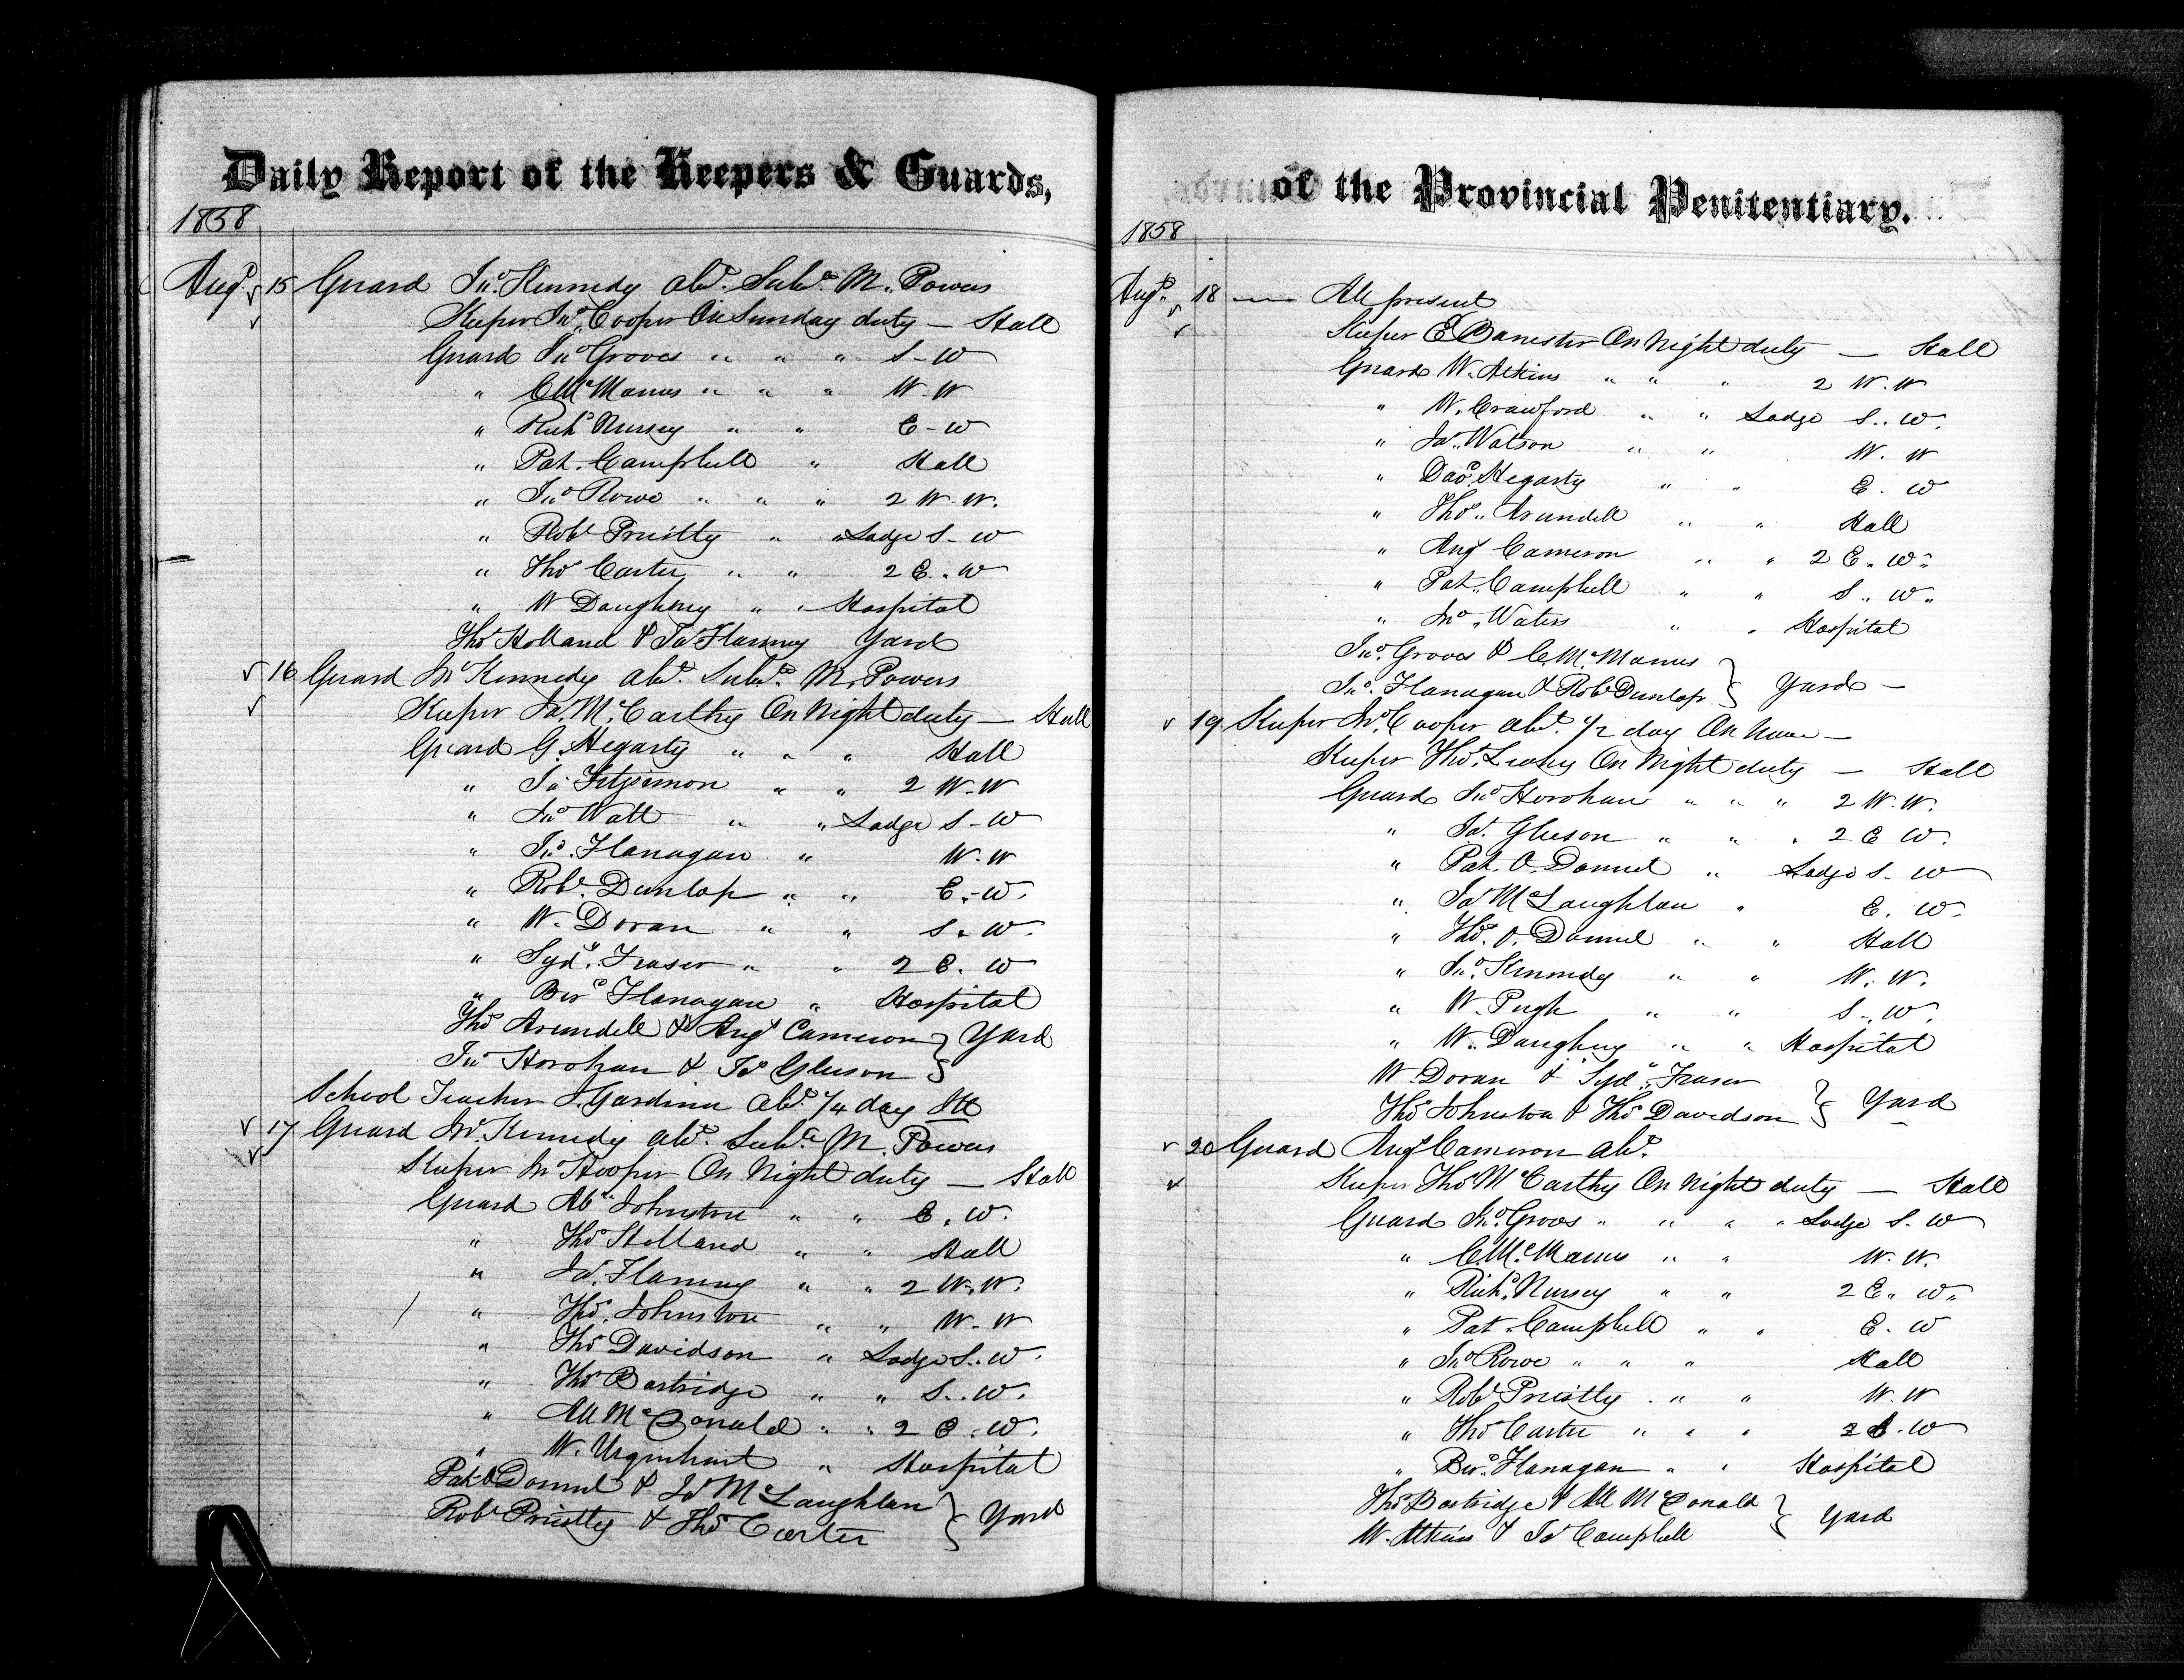 Daily Report of the Keepers & Guards,
1858
Augt 15 Guard Jno. Kennedy abt. Subte. M. Powers
Keeper Jno. Cooper On Sunday duty — Hall
Guard Jno Groves " " " S - W
" C McManus " " " W - W
" Richd Nursey " " E - W
" Pat. Campbell " Hall
" Jno Rowe " " " 2 W. W.
" Robt Priestly " " Lodge S - W
" Thos Carter " " 2 E. W
" W Daughney " " Hospital
Thos Holland & Jas Flaming Yard
16 Guard Jno Kennedy abt Subte. M. Powers
Keeper Jas. McCarthy On Night duty — Hall
Guard G. Hegarty " " " Hall
" Ja. Fitzsimon " " 2 W - W
" Jno Watt " " Lodge S - W
" Jno. Flanagan " W - W
" Robt. Dunlop " " E - W.
" W. Doran " " S. W.
" Sydy. Fraser " " 2 E. W
" Berd Flanagan " Hospital
Thos Arundell & Angs Cameron } Yard
Jno Horohan & Jas Gleeson }
School Teacher J. Gardiner abt. 1/4 day Ill
17 Guard Jno. Kennedy abt. Subte M. Powers
Keeper Jno Hooper On Night duty — Hall
Guard Abm Johnston " " E. W.
" Thos Holland " " Hall
" Jas. Flaming " " 2 W. W.
" Thos. Johnston " " W - W
" Thos Davidson " Lodge S. W.
" Thos Bartridge " " S. W.
" All McDonald " " 2 E. W.
" W. Urquhart " Hospital
Pat O Donnel & Jas McLaughlan } Yard
Robt Priestly & Thos Carter }
of the Provincial Penitentiary.
1858
Augt. 18 — All present
Keeper E Banester On Night duty — Hall
Guard W. Atkins " " " 2 W. W
" W. Crawford " " Lodge S. W.
" Jas. Watson " " W. W
" Davd. Hegarty " " E. W
" Thos. Arundell " " Hall
" Angs Cameron " " 2 E. W.
" Pat. Campbell " " S. W.
" Jno. Waters " " Hospital
Jno. Groves & C. McManus }
Jno. Flanagan & Robt Dunlop } Yard —
19 Keeper Jno. Cooper abt. 1/2 day On leave —
Keeper Thos. Leahy On Night duty — Hall
Guard Jno Horohan " " " 2 W. W.
" Jas. Gleeson " " " 2 E W.
" Pat. O. Donnel " Lodge S. W
" Jas McLaughlan " E. W.
" Thos. O. Donnel " " Hall
" Jno. Kennedy " " W. W.
" W. Pugh " " S. W.
" W. Daughney " " Hospital
W. Doran & Sydy. Fraser }
Thos Johnston & Thos Davidson } Yard
20 Guard Angs Cameron abt.
Keeper Thos McCarthy On Night duty — Hall
Guard Jno. Groves " " " " Lodge S. W
" C. McManus " " W. W.
" Richd. Nursey " " 2 E. W.
" Pat. Campbell " " E. W
" Jno Rowe " " " Hall
" Robt Priestly " " " W. W
" Thos Carter " " " 2 S. W
" Berd. Flanagan " " Hospital
Thos Bartridge & All McDonald } Yard
W. Atkins & Jas Campbell }